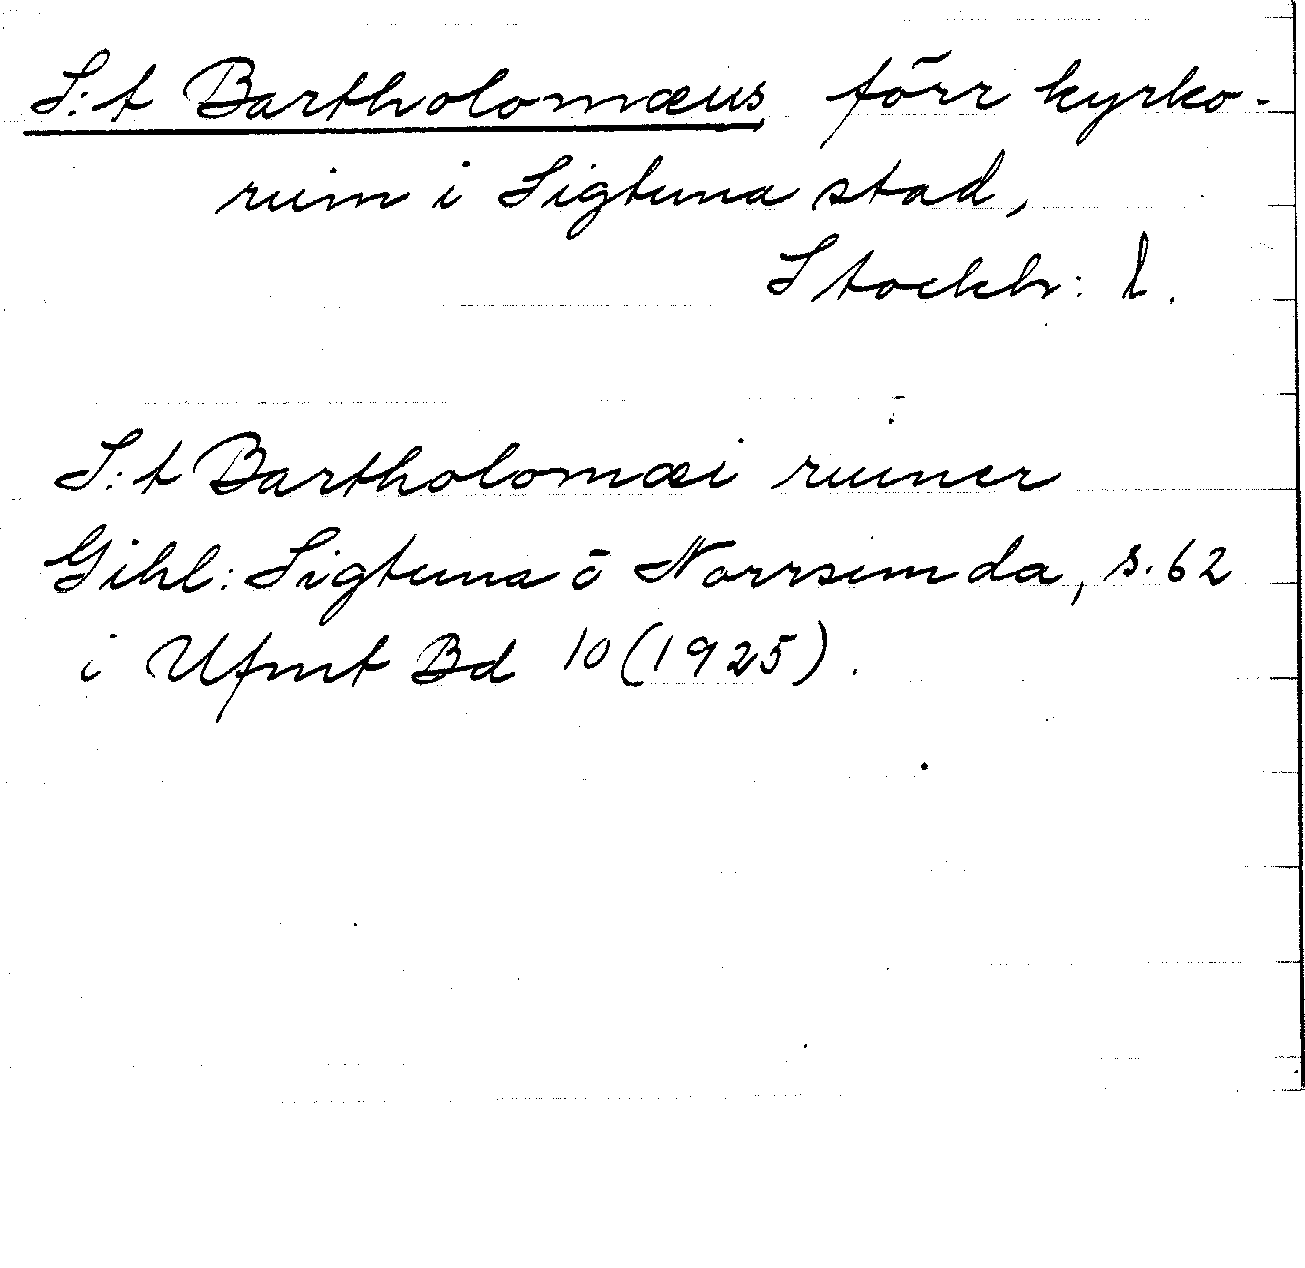 S:t Bartholomæus förr kyrko-
ruin i Sigtuna stad,
Stockh: l.
S:t Bartholomæi ruiner
Gihl: Sigtuna o Norrsunda, s. 62
i Ufmt Bd 10 (1925).